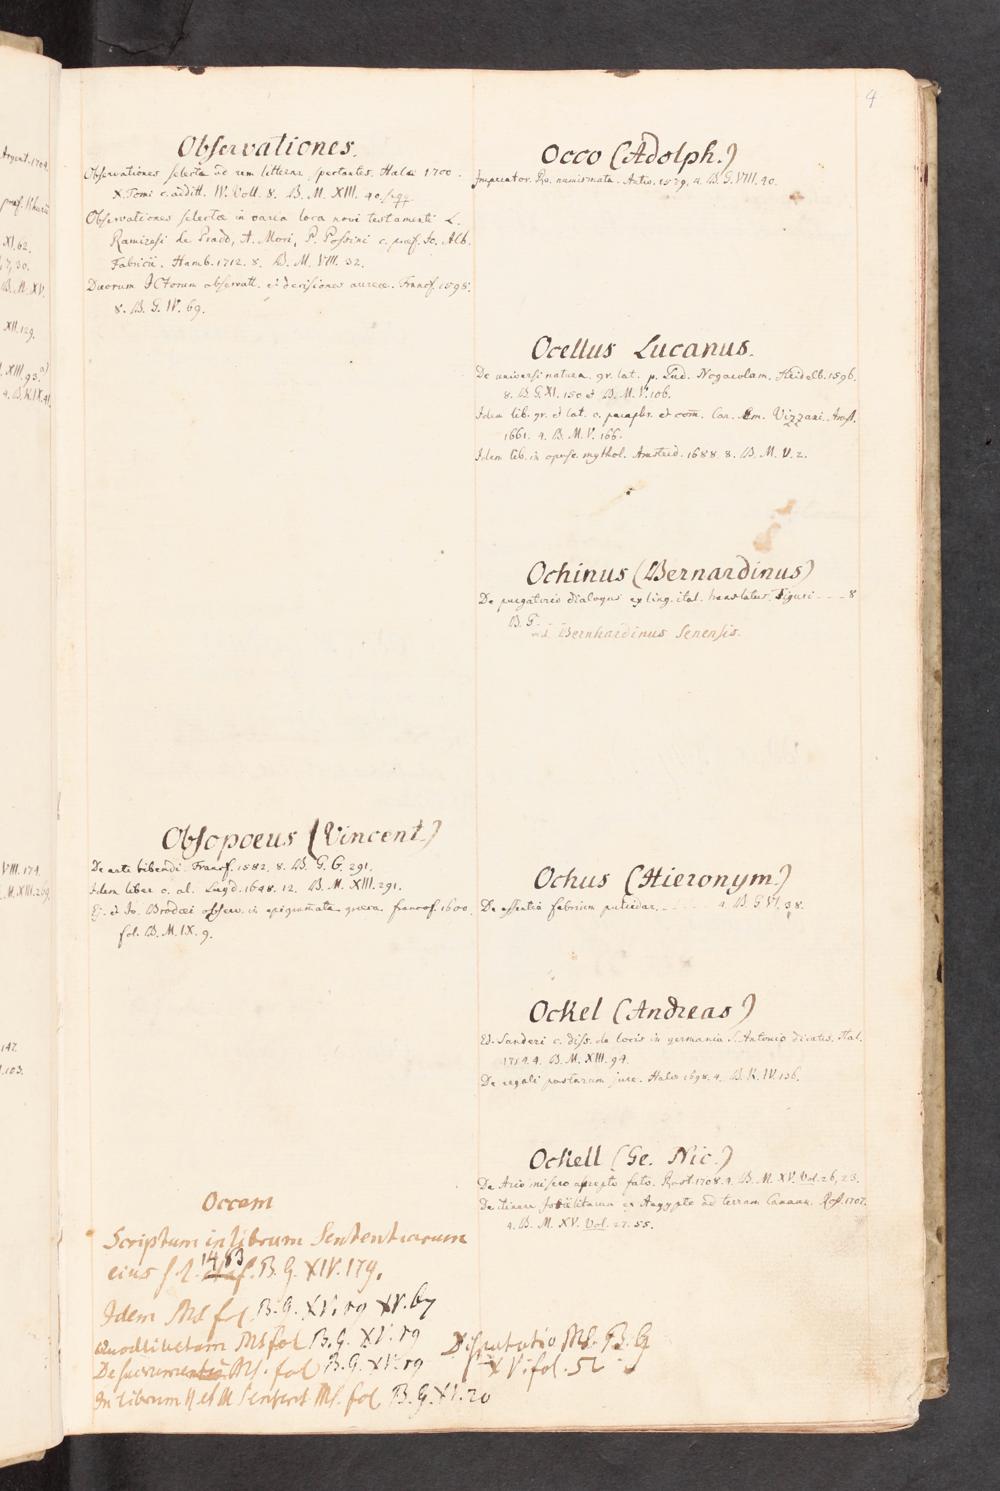 4
Observationes.
Observationes selectæ ad rem litterar. spectantes. Halæ 1700.
X. Tomi c. additt. IV. Voll. 8. B. M. XIII. 40. sqq.
Observationes selectæ in varia loca novi testamenti L.
Ramiresi de Prado, A. Mori, P. Possini c. præf. Jo. Alb.
Fabricii. Hamb. 1712. 8. B. M. VIII. 32.
Duorum ICtorum observatt. et decisiones aureæ. Francf. 1598.
8. B. G. IV. 69.
Obsopoeus (Vincent.)
De arte bibendi. Francf. 1582. 8. B. G. G. 291.
Idem liber c. al. Lugd. 1648. 12. B. M. XIII. 291.
Ej. et Jo. Brodæi observ. in epigrammata græca. francof. 1600.
fol. B. M. IX. 9.
Occam
Scriptum in librum Sententiarum
eius f 1. 1483 B. G. XIV. 174.
Idem Ms fol B. G. XV. 59 XV. 67
Quodlibetarm Ms fol B. G. XV. 59
De sacramentis Ms. fol B. G. XV. 59
In librum II et III Sentent Ms. fol B. G. XV. 20
Disputatio Ms. B. G
XV. fol. 52
Occo (Adolph.)
Imperator. Ro. numismata. Antw. 1579. 4. B. G. VIII. 40.
Ocellus Lucanus.
De universi natura. gr. lat. p. Lud. Nogarolam. Heidelb. 1596.
8. B. G. XI. 150 et B. M. V. 106.
Idem lib. gr. et lat. c. paraphr. et com. Car. Em. Vizzani. Amst.
1661. 4. B. M. V. 166.
Idem lib. in opusc. mythol. Amsteld. 1688. 8. B. M. V. 2.
Ochinus (Bernardinus)
De purgatorio dialogus ex ling. ital. translatus. Tiguri - - - 8
B. G.
vid. Bernhardinus Senensis.
Ochus (Hieronym.)
De essentia febrium putridar. - - - - 4. B. G. VI. 38.
Ockel (Andreas)
Ed. Sanderi c. diss. de locis in germania S. Antonio dicatis. Hal.
1714. 4. B. M. XIII. 94.
De regali postarum jure. Halæ 1698. 4. B. K. IV. 136.
Ockell (Ge. Nic.)
De Ario misero abrepto fato. Rost. 1708. 4. B. M. XV. Vol. 26, 23.
De itinere Israelitarum ex Aegypto ad terram Canaan. Rost. 1707.
4. B. M. XV. Vol. 27. 55.